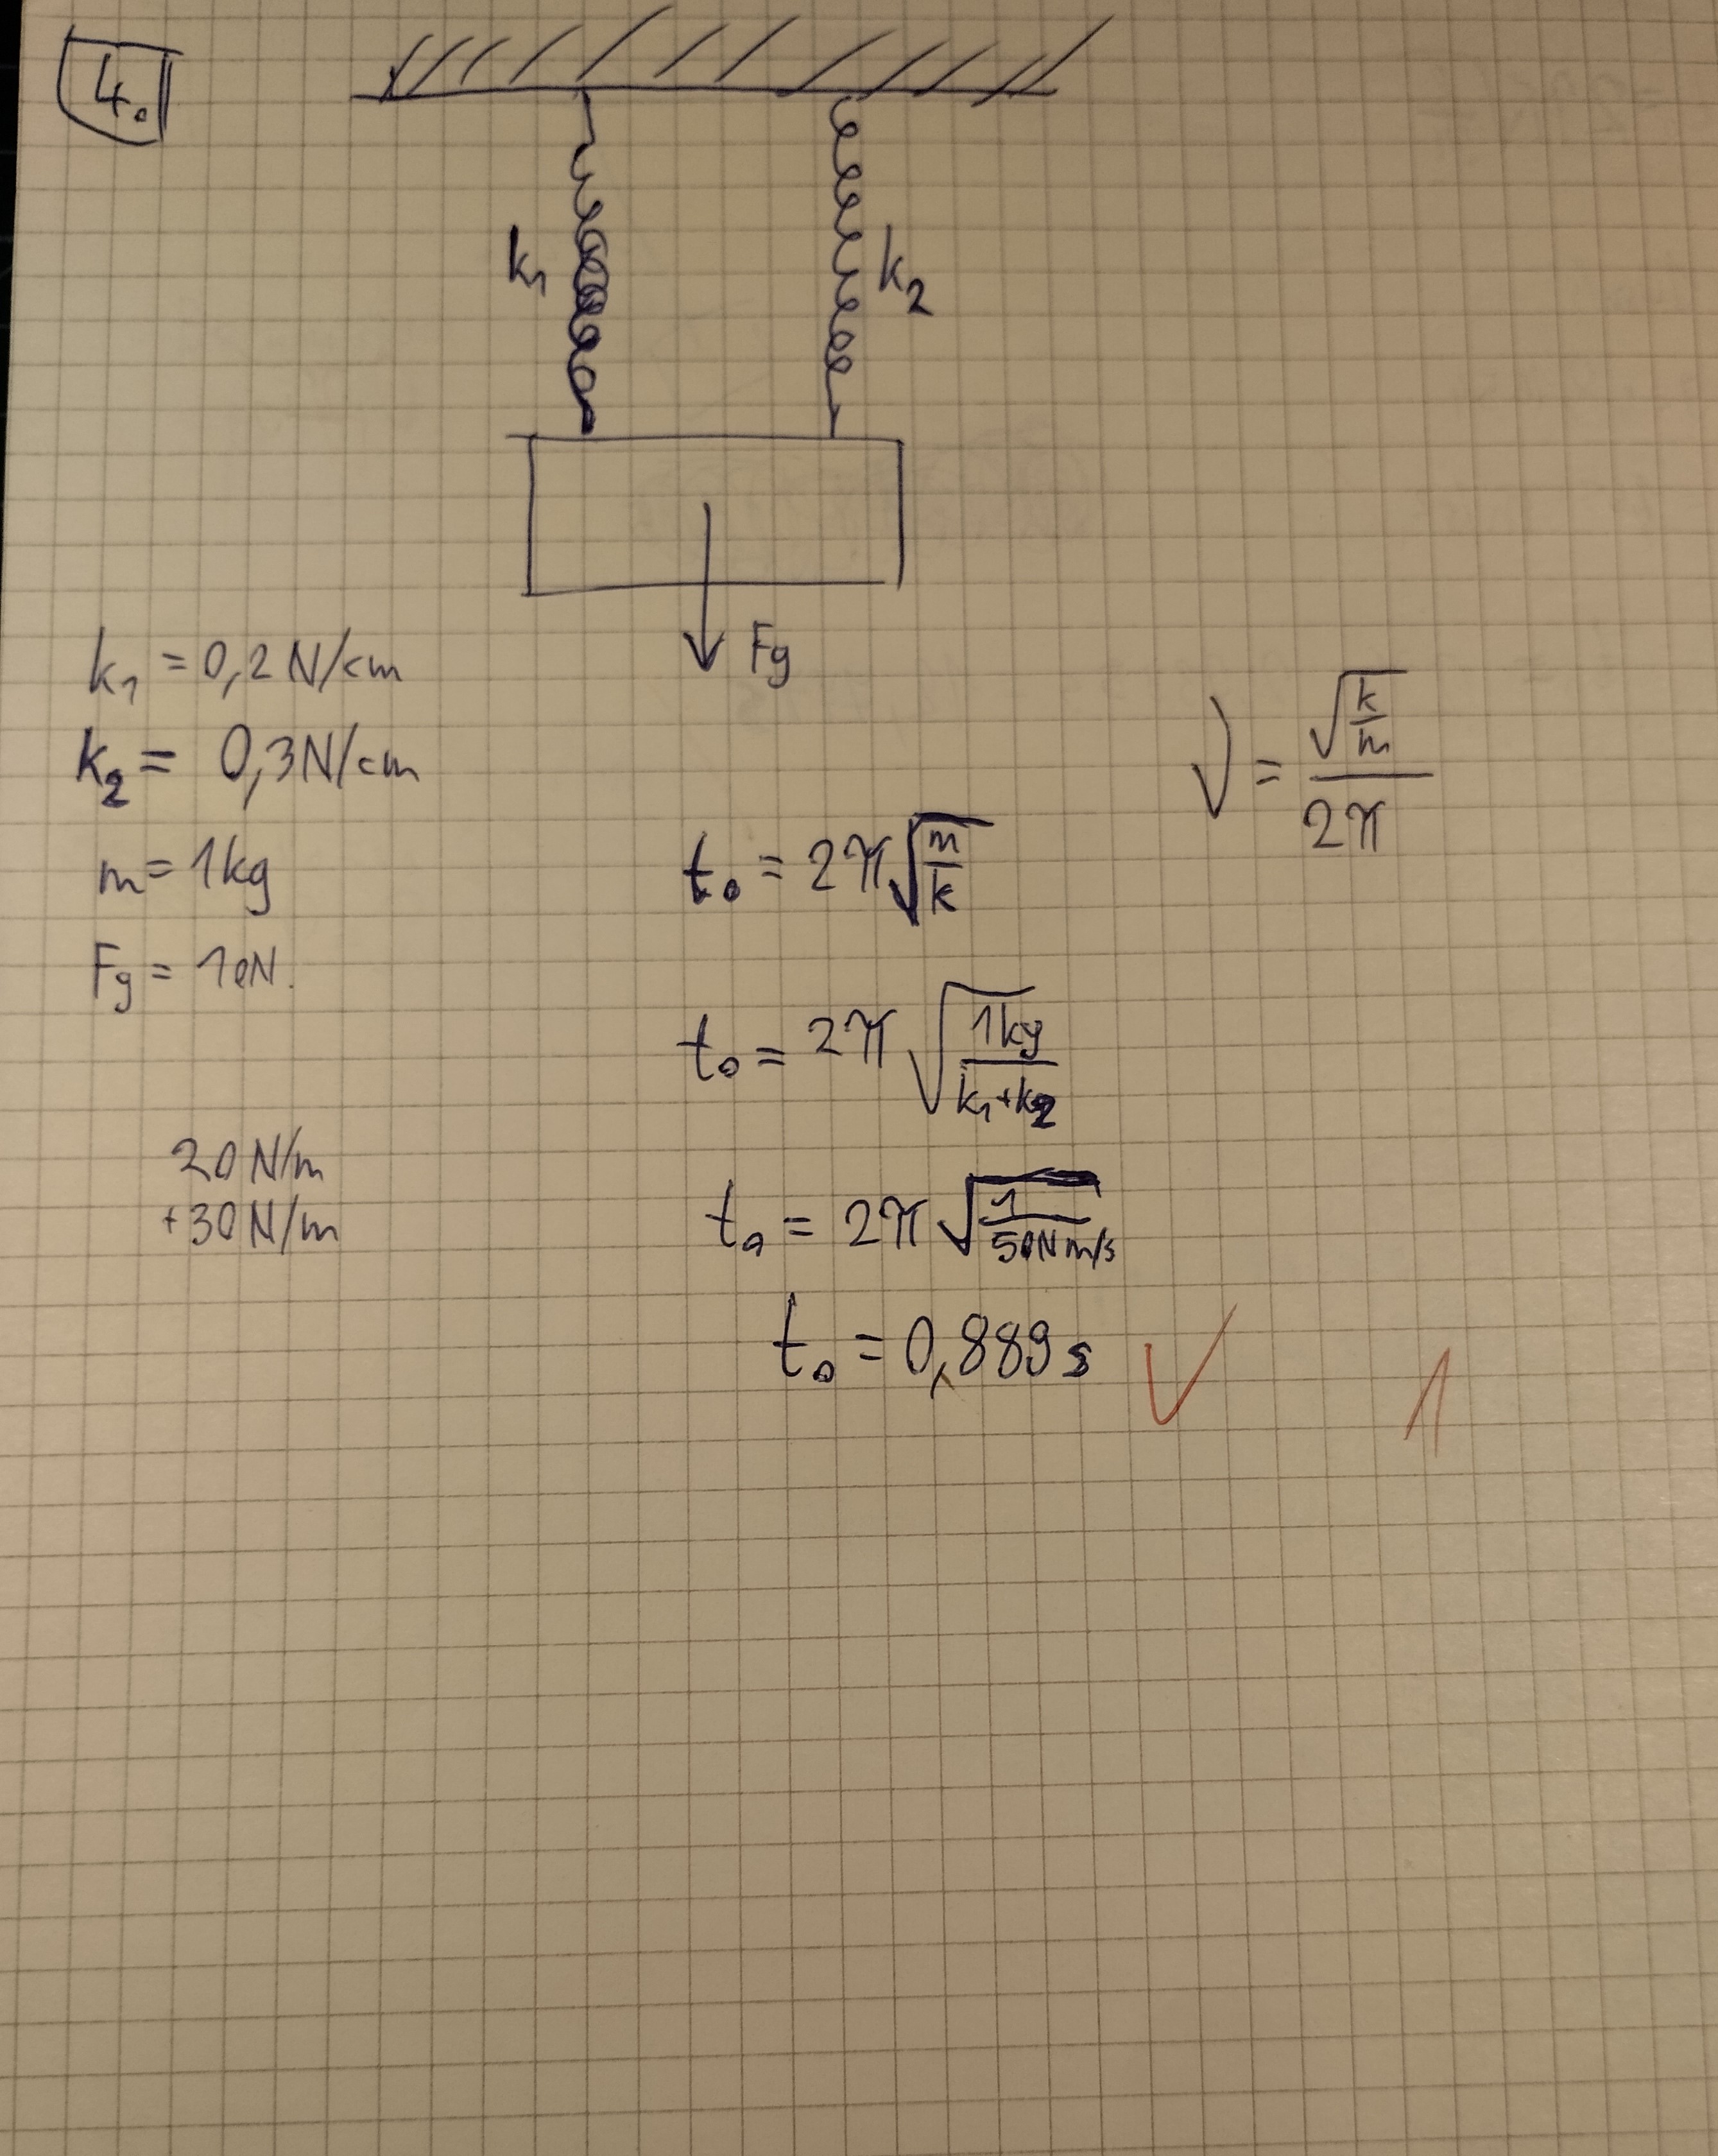 4.
k₁
k₂
Fg
k₁ = 0,2 N/cm
k₂ = 0,3 N/cm
m = 1kg
Fg = 10N.
20 N/m
+30 N/m
ν = √(k/m) / 2π
t₀ = 2π √(m/k)
t₀ = 2π √(1kg/(k₁+k₂))
t₀ = 2π √(1/(50N m/s))
t₀ = 0,889 s ✓
1